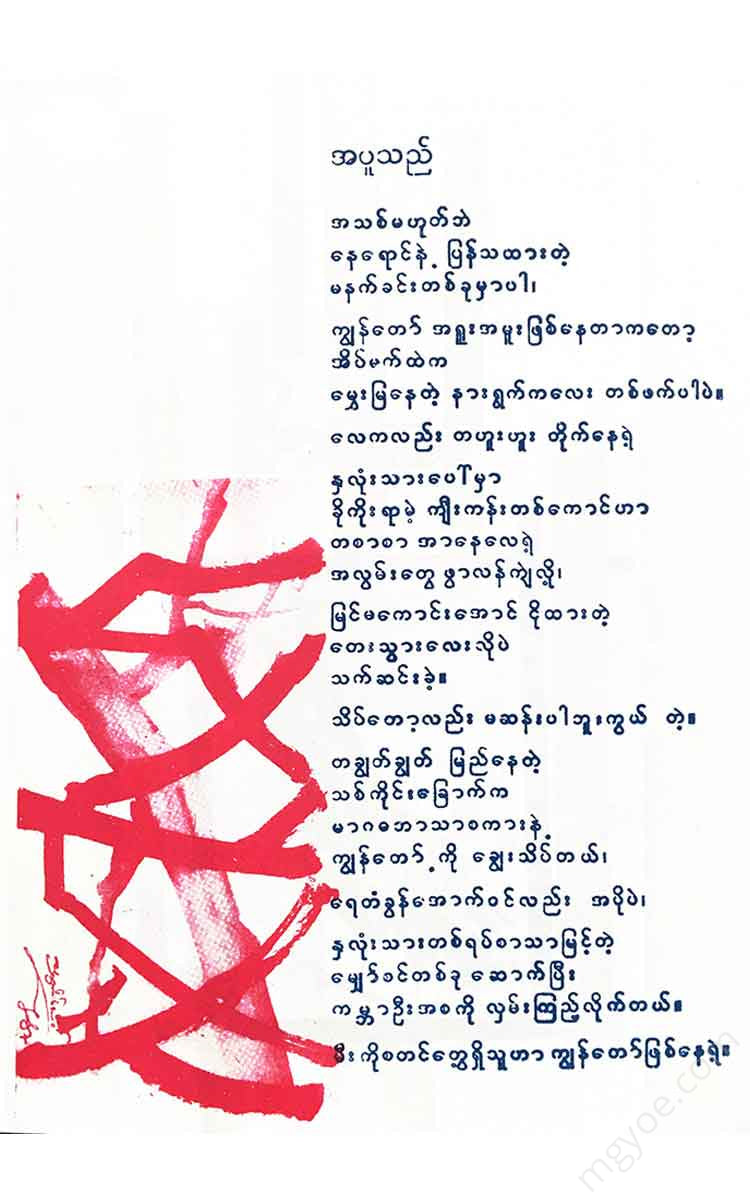 အပူသည်
အသစ်မဟုတ်ဘဲ
နေရောင်နဲ့ ပြန်သထားတဲ့
မနက်ခင်းတစ်ခုမှာပါ၊
ကျွန်တော် အရူးအမူးဖြစ်နေတာကတော့
အိပ်မက်ထဲက
မွှေးမြနေတဲ့ နားရွက်ကလေး တစ်ဖက်ပါပဲ။
လေကလည်း တဟူးဟူး တိုက်နေရဲ့
နှလုံးသားပေါ်မှာ
ခိုကိုးရာမဲ့ ကျီးကန်းတစ်ကောင်ဟာ
တစာစာ အာနေလေရဲ့
အလွမ်းတွေ ဖွာလန်ကျဲလို့၊
မြင်မကောင်းအောင် ငိုထားတဲ့
တေးသွားလေးလိုပဲ
သက်ဆင်းခဲ့။
သိပ်တော့လည်း မဆန်းပါဘူးကွယ် တဲ့။
တချွတ်ချွတ် မြည်နေတဲ့
သစ်ကိုင်းခြောက်က
မာဂဓဘာသာစကားနဲ့
ကျွန်တော့်ကို ချွေးသိပ်တယ်၊
ရေတံခွန်အောက်ဝင်လည်း အပိုပဲ၊
နှလုံးသားတစ်ရပ်စာသာမြင့်တဲ့
မျှော်စင်တစ်ခု ဆောက်ပြီး
ကမ္ဘာဦးအစကို လှမ်းကြည့်လိုက်တယ်။
မီးကိုစတင်တွေ့ရှိသူဟာ ကျွန်တော်ဖြစ်နေရဲ့။
mgyoe.com